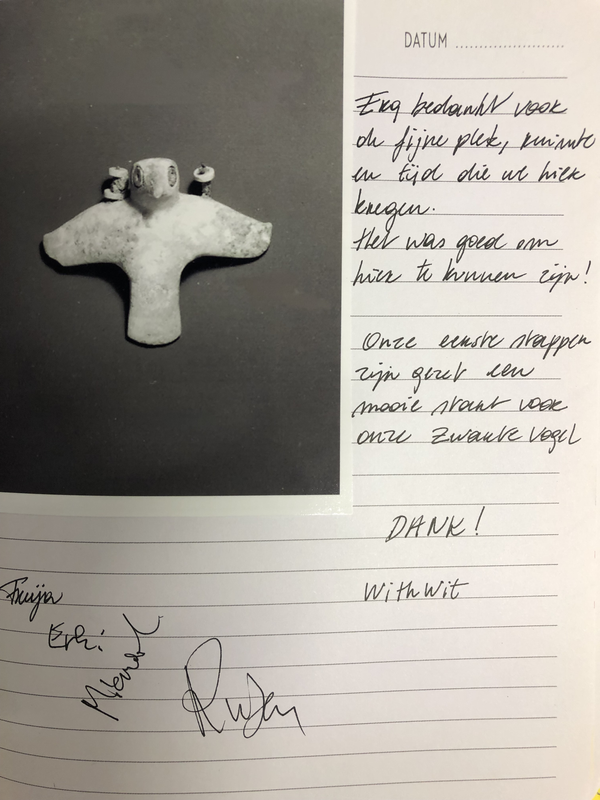 DATUM ........................
Erg bedankt voor
de fijne plek, ruimte
en tijd die we hier
kregen.
Het was goed om
hier te kunnen zijn!
Onze eerste stappen
zijn gezet een
mooie start voor
onze Zwarte Vogel
DANK!
WithWit
Freija
Ruben